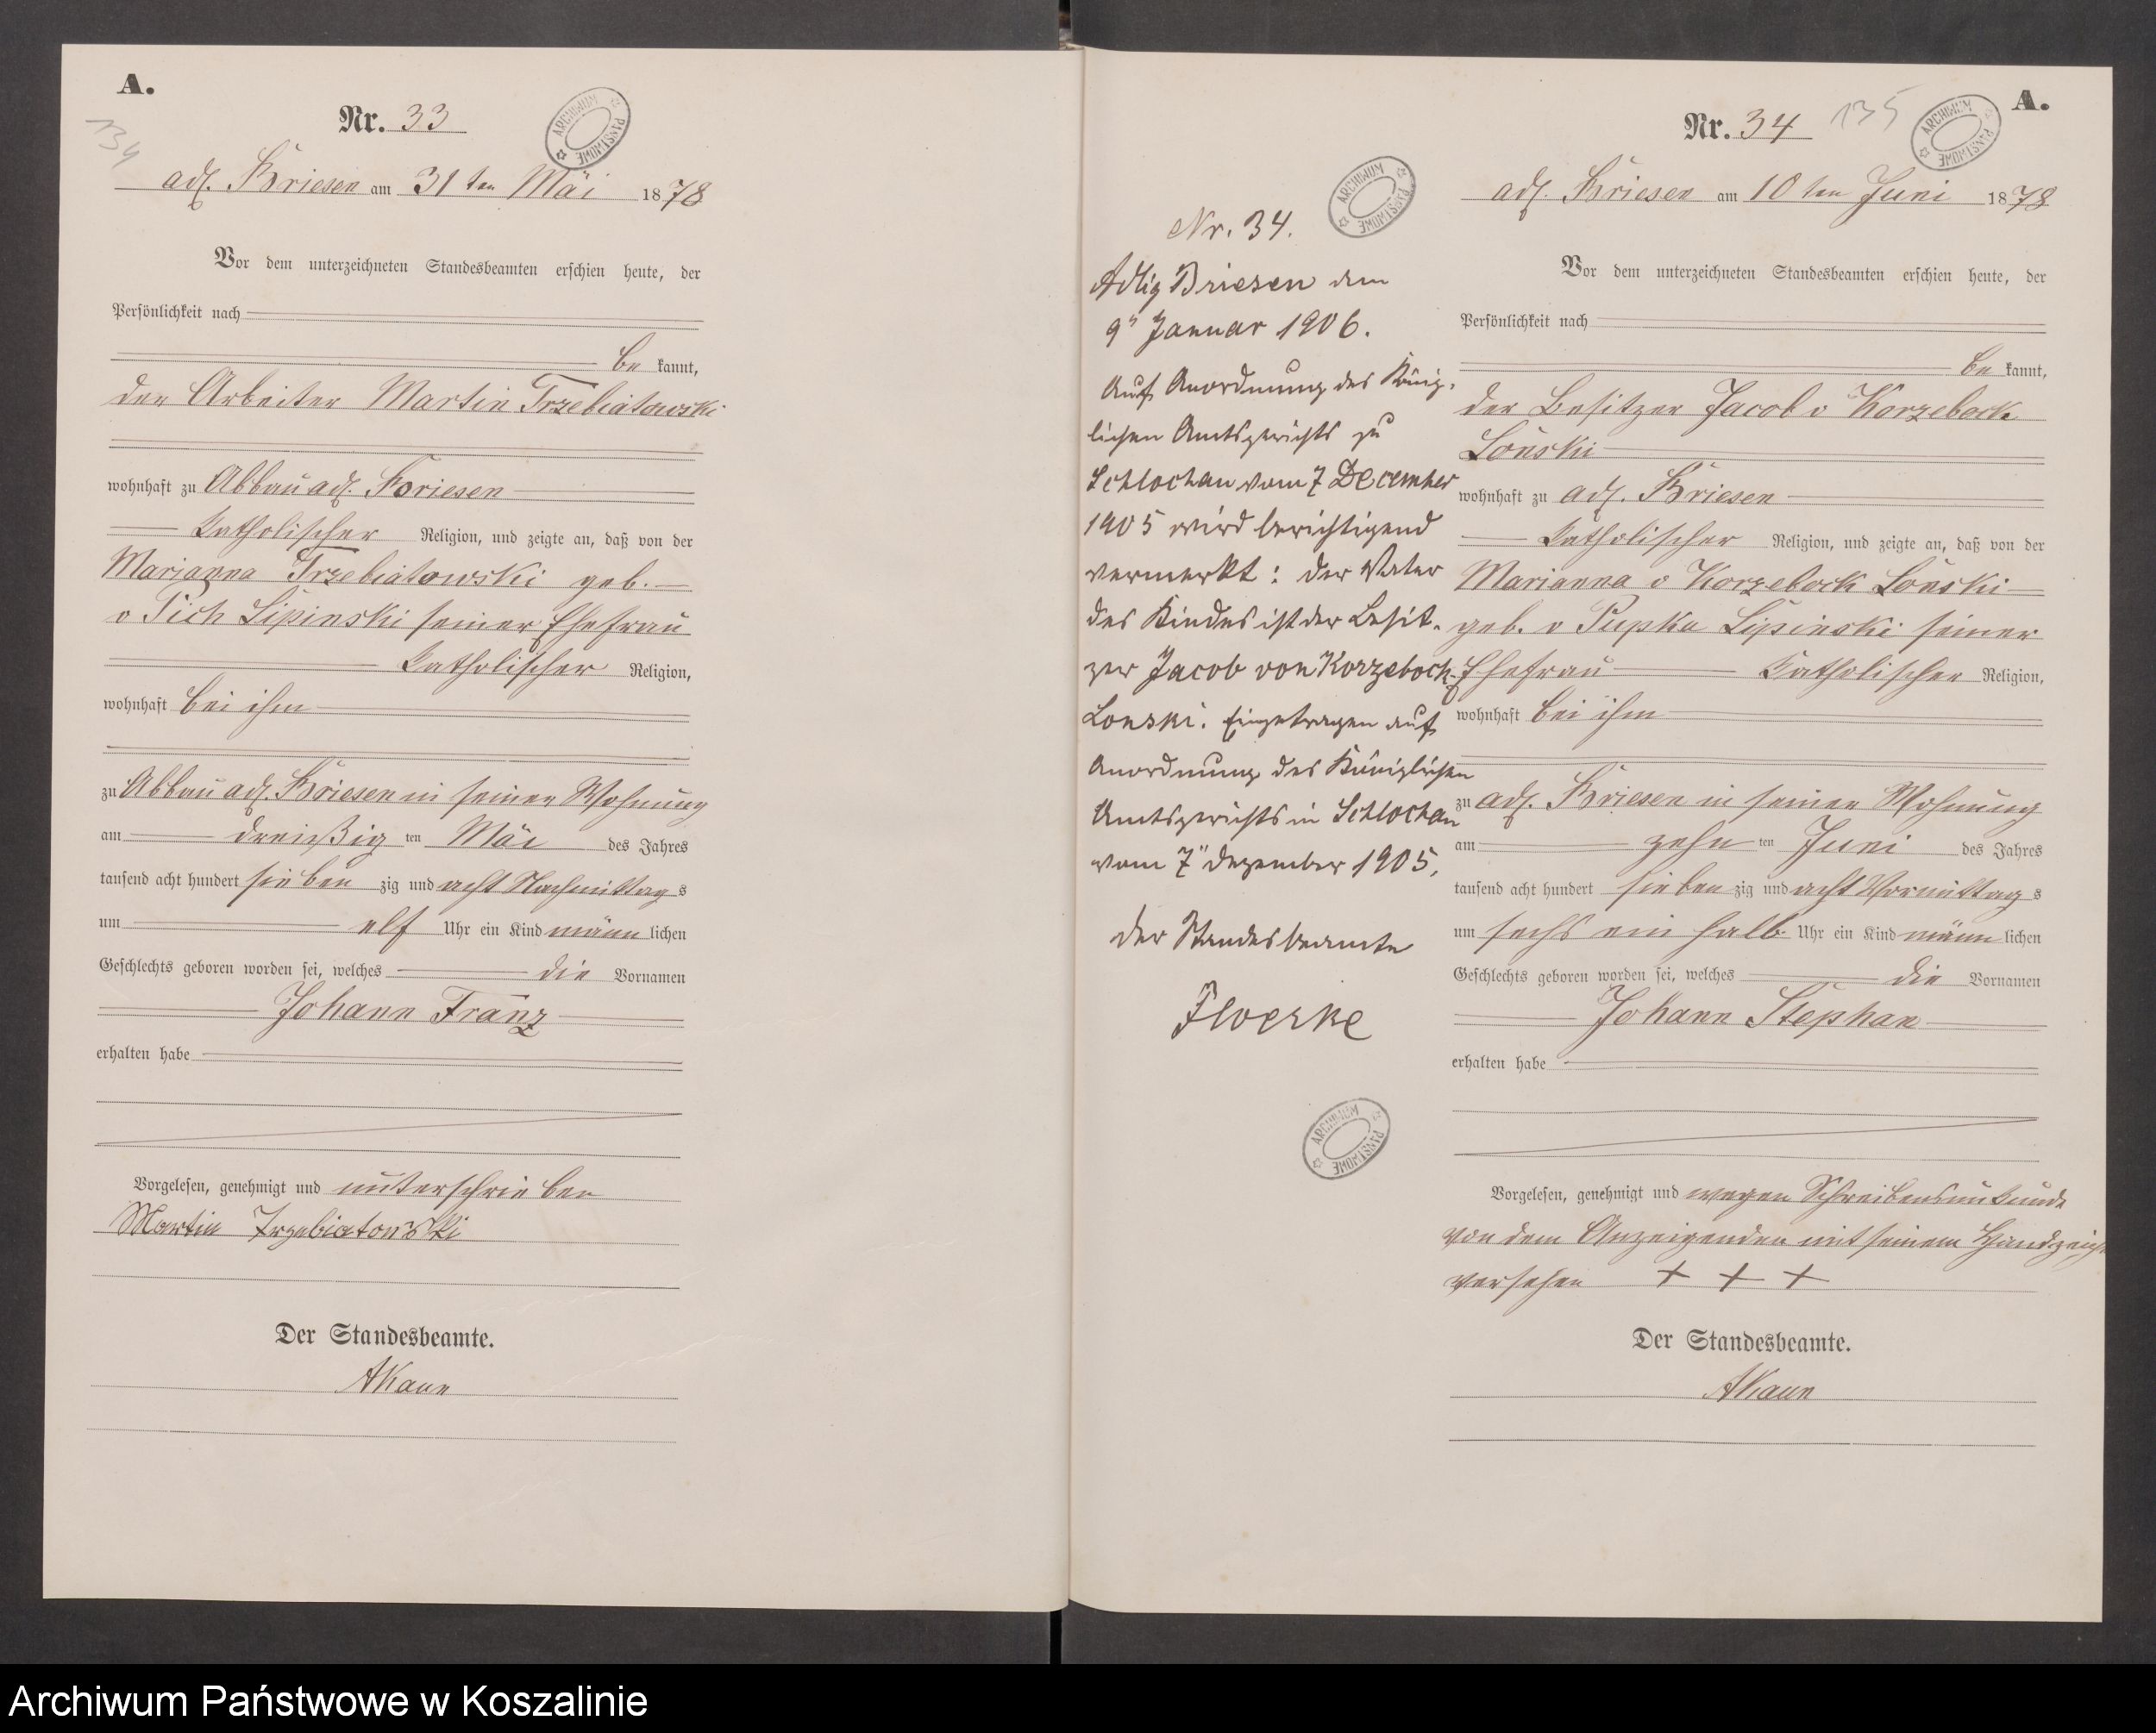 A.
134
Nr. 33
ARCHIWUM PAŃSTWOWE
adl. Briesen am 31ten Mai 1878
Vor dem unterzeichneten Standesbeamten erschien heute, der
Persönlichkeit nach
be kannt,
der Arbeiter Martin Trzebiatowski
wohnhaft zu Abbau adl. Briesen
katholischer Religion, und zeigte an, daß von der
Marianna Trzebiatowski geb.
v Pich Lipinski seiner Ehefrau
katholischer Religion,
wohnhaft bei ihm
zu Abbau adl. Briesen in seiner Wohnung
am dreißig ten Mai des Jahres
tausend acht hundert sieben zig und acht Nachmittag s
um elf Uhr ein Kind männ lichen
Geschlechts geboren worden sei, welches die Vornamen
Johann Franz
erhalten habe
Vorgelesen, genehmigt und unterschrieben
Martin Trzebiatowski
Der Standesbeamte.
AKann
ARCHIWUM PAŃSTWOWE
Nr. 34.
Adlig Briesen den
9" Januar 1906.
Auf Anordnung des König-
lichen Amtsgerichts zu
Schlochau vom 7 December
1905 wird berichtigend
vermerkt: der Vater
des Kindes ist der Besit-
zer Jacob von Korzeboch-
Lonski. Eingetragen auf
Anordnung des Königlichen
Amtsgerichts in Schlochau
vom 7" Dezember 1905.
der Standesbeamte
Floerke
ARCHIWUM PAŃSTWOWE
A.
Nr. 34 135
ARCHIWUM PAŃSTWOWE
adl. Briesen am 10ten Juni 1878
Vor dem unterzeichneten Standesbeamten erschien heute, der
Persönlichkeit nach
be kannt,
der Besitzer Jacob v Korzebock
Lonski
wohnhaft zu adl. Briesen
katholischer Religion, und zeigte an, daß von der
Marianna v Korzebock Lonski
geb. v Pupka Lipinski seiner
Ehefrau katholischer Religion,
wohnhaft bei ihm
zu adl. Briesen in seiner Wohnung
am zehn ten Juni des Jahres
tausend acht hundert sieben zig und acht Vormittag s
um sechs ein halb Uhr ein Kind männ lichen
Geschlechts geboren worden sei, welches die Vornamen
Johann Stephan
erhalten habe
Vorgelesen, genehmigt und wegen Schreibensunkunde
von dem Anzeigenden mit seinem Handzeich
versehen + + +
Der Standesbeamte.
AKann
Archiwum Państwowe w Koszalinie